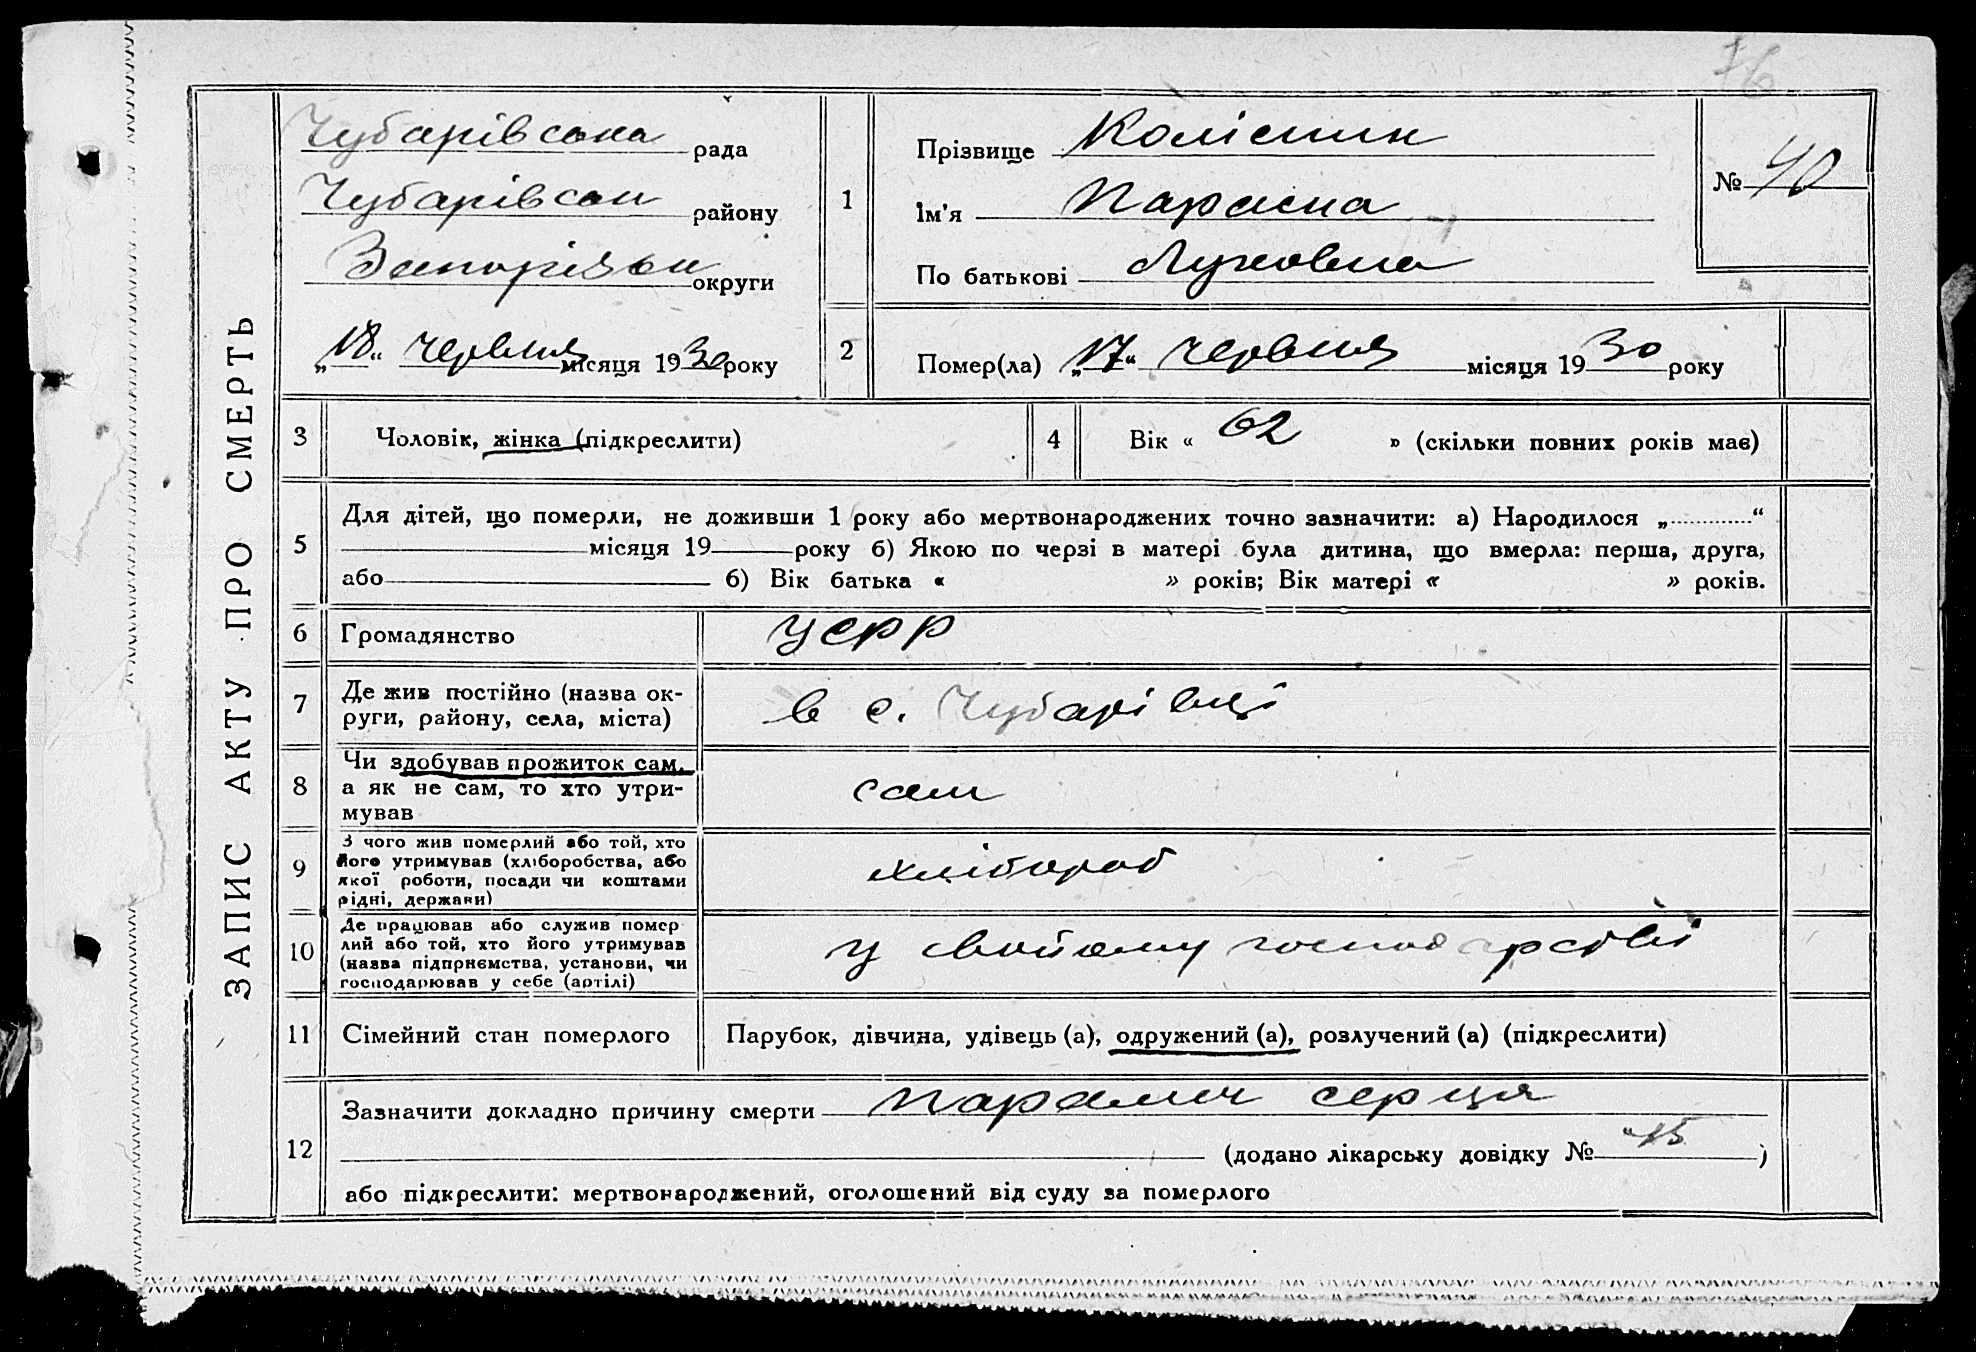 76
ЗАПИС АКТУ ПРО СМЕРТЬ
Чубарівська рада
Чубарівськ району
Запорізьк округи
„18“ червня місяця 1930 року
1
Прізвище Колісник
Ім'я Параска
По батькові
№ 40
2
Помер(ла) „17“ червня місяця 1930 року
3
Чоловік, жінка (підкреслити)
4
Вік « 62 » (скільки повних років має)
5
Для дітей, що померли, не доживши 1 року або мертвонароджених точно зазначити: а) Народилося „............“
місяця 19 року б) Якою по черзі в матері була дитина, що вмерла: перша, друга,
або б) Вік батька « » років; Вік матері « » років.
6
Громадянство УСРР
7
Де жив постійно (назва ок-
руги, району, села, міста)
в с. Чубарівці
8
Чи здобував прожиток сам,
а як не сам, то хто утри-
мував
сам
9
З чого жив померлий або той, хто
його утримував (хліборобства, або
якої роботи, посади чи коштами
рідні, держави)
хлібороб
10
Де працював або служив помер
лий або той, хто його утримував
(назва підприємства, установи, чи
господарював у себе (артілі)
у свойому господарстві
11
Сімейний стан померлого
Парубок, дівчина, удівець (а), одружений (а), розлучений (а) (підкреслити)
12
Зазначити докладно причину смерти параліч серця
(додано лікарську довідку № 45 )
або підкреслити: мертвонароджений, оголошений від суду за померлого